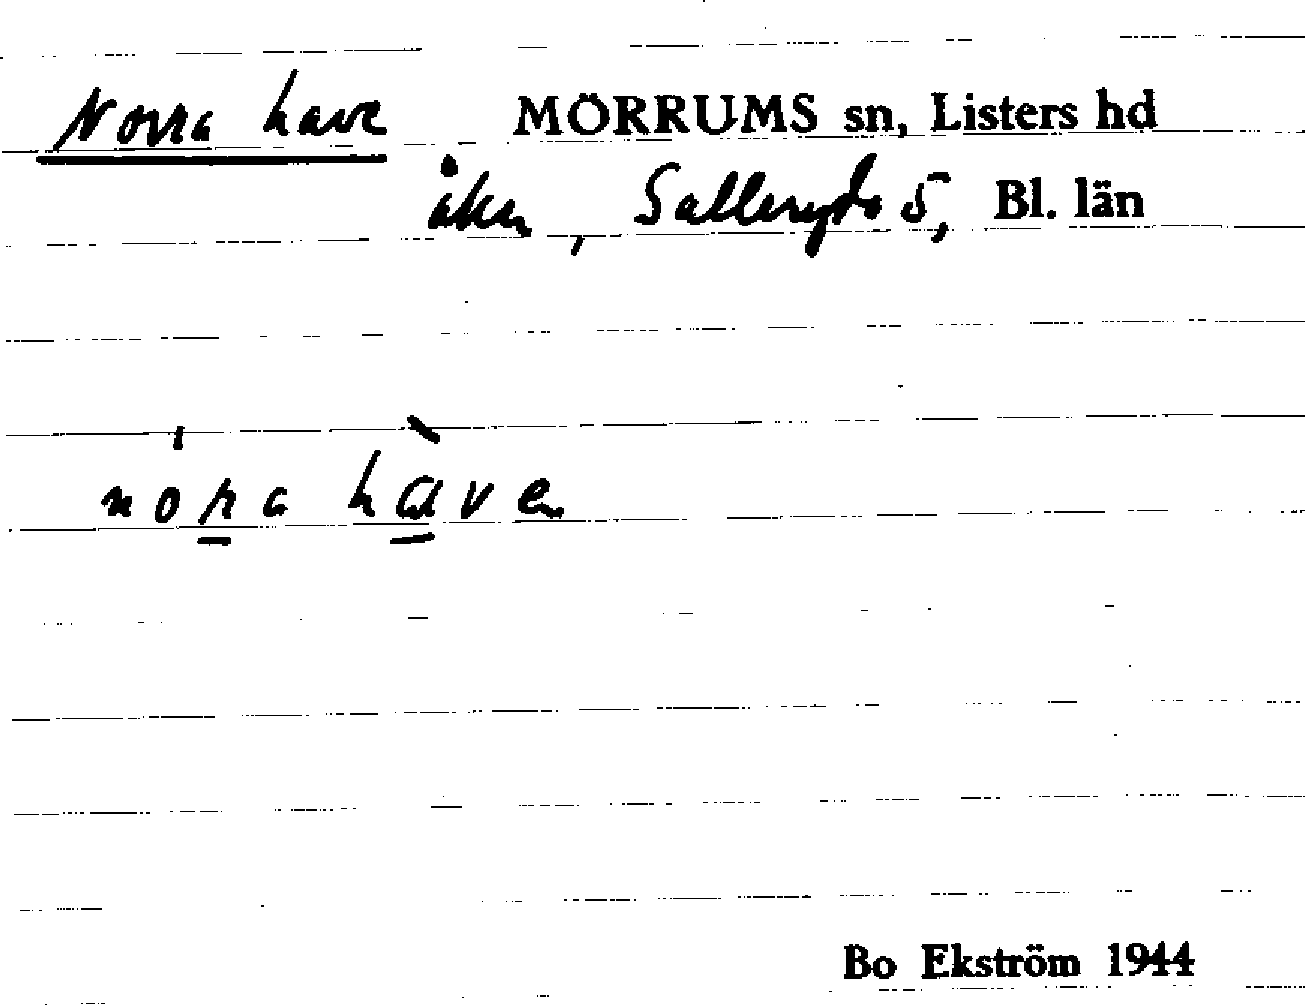 Norra have MÖRRUMS sn, Listers hd
åker, Salleryds 5, Bl. län
nóra hàven
Bo Ekström 1944